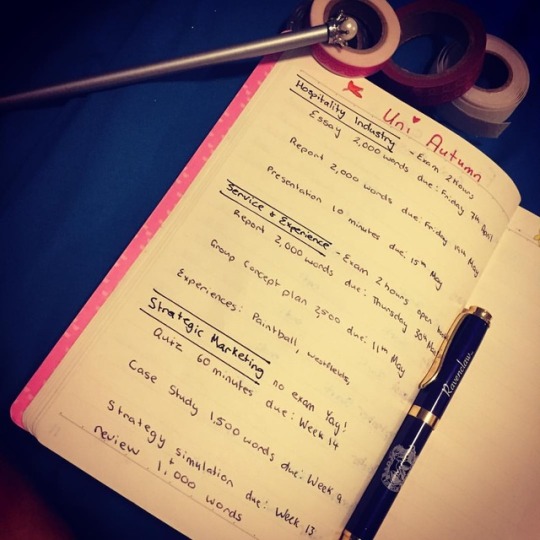 Uni Autumn
Hospitality Industry - Exam 2 Hours
Essay 2,000 words due: Friday 7th April
Report 2,000 words due: Friday May
Presentation 10 minutes due: 15th May
Service & Experience - Exam 2 hours open
Report 2,000 words due: Thursday 30th Ma
Group Concept plan 2,500 due: 11th May
Experiences: Paintball, westfields,
Strategic Marketing no exam Yay!
Quiz 60 minutes due: Week 14
Case Study 1,500 words due: Week 9
Strategy simulation due: Week 13
review 1,000 words
Ravenclaw